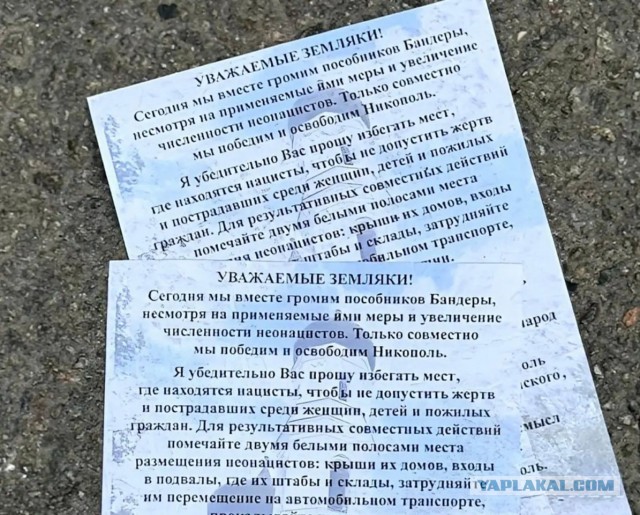 УВАЖАЕМЫЕ ЗЕМЛЯКИ!
Сегодня мы вместе громим пособников Бандеры,
несмотря на применяемые ими меры и увеличение
численности неонацистов. Только совместно
мы победим и освободим Никополь.
Я убедительно Вас прошу избегать мест,
где находятся нацисты, чтобы не допустить жертв
и пострадавших среди женщин, детей и пожилых
граждан. Для результативных совместных действий
помечайте двумя белыми полосами места
неонацистов: крыши их домов, входы
штабы и склады, затрудняйте
транспорте,
народ
УВАЖАЕМЫЕ ЗЕМЛЯКИ!
Сегодня мы вместе громим пособников Бандеры,
несмотря на применяемые ими меры и увеличение
численности неонацистов. Только совместно
мы победим и освободим Никополь.
Я убедительно Вас прошу избегать мест,
где находятся нацисты, чтобы не допустить жертв
и пострадавших среди женщин, детей и пожилых
граждан. Для результативных совместных действий
помечайте двумя белыми полосами места
размещения неонацистов: крыши их домов, входы
в подвалы, где их штабы и склады, затрудняйте
им перемещение на автомобильном транспорте,
YAPLAKAL.COM